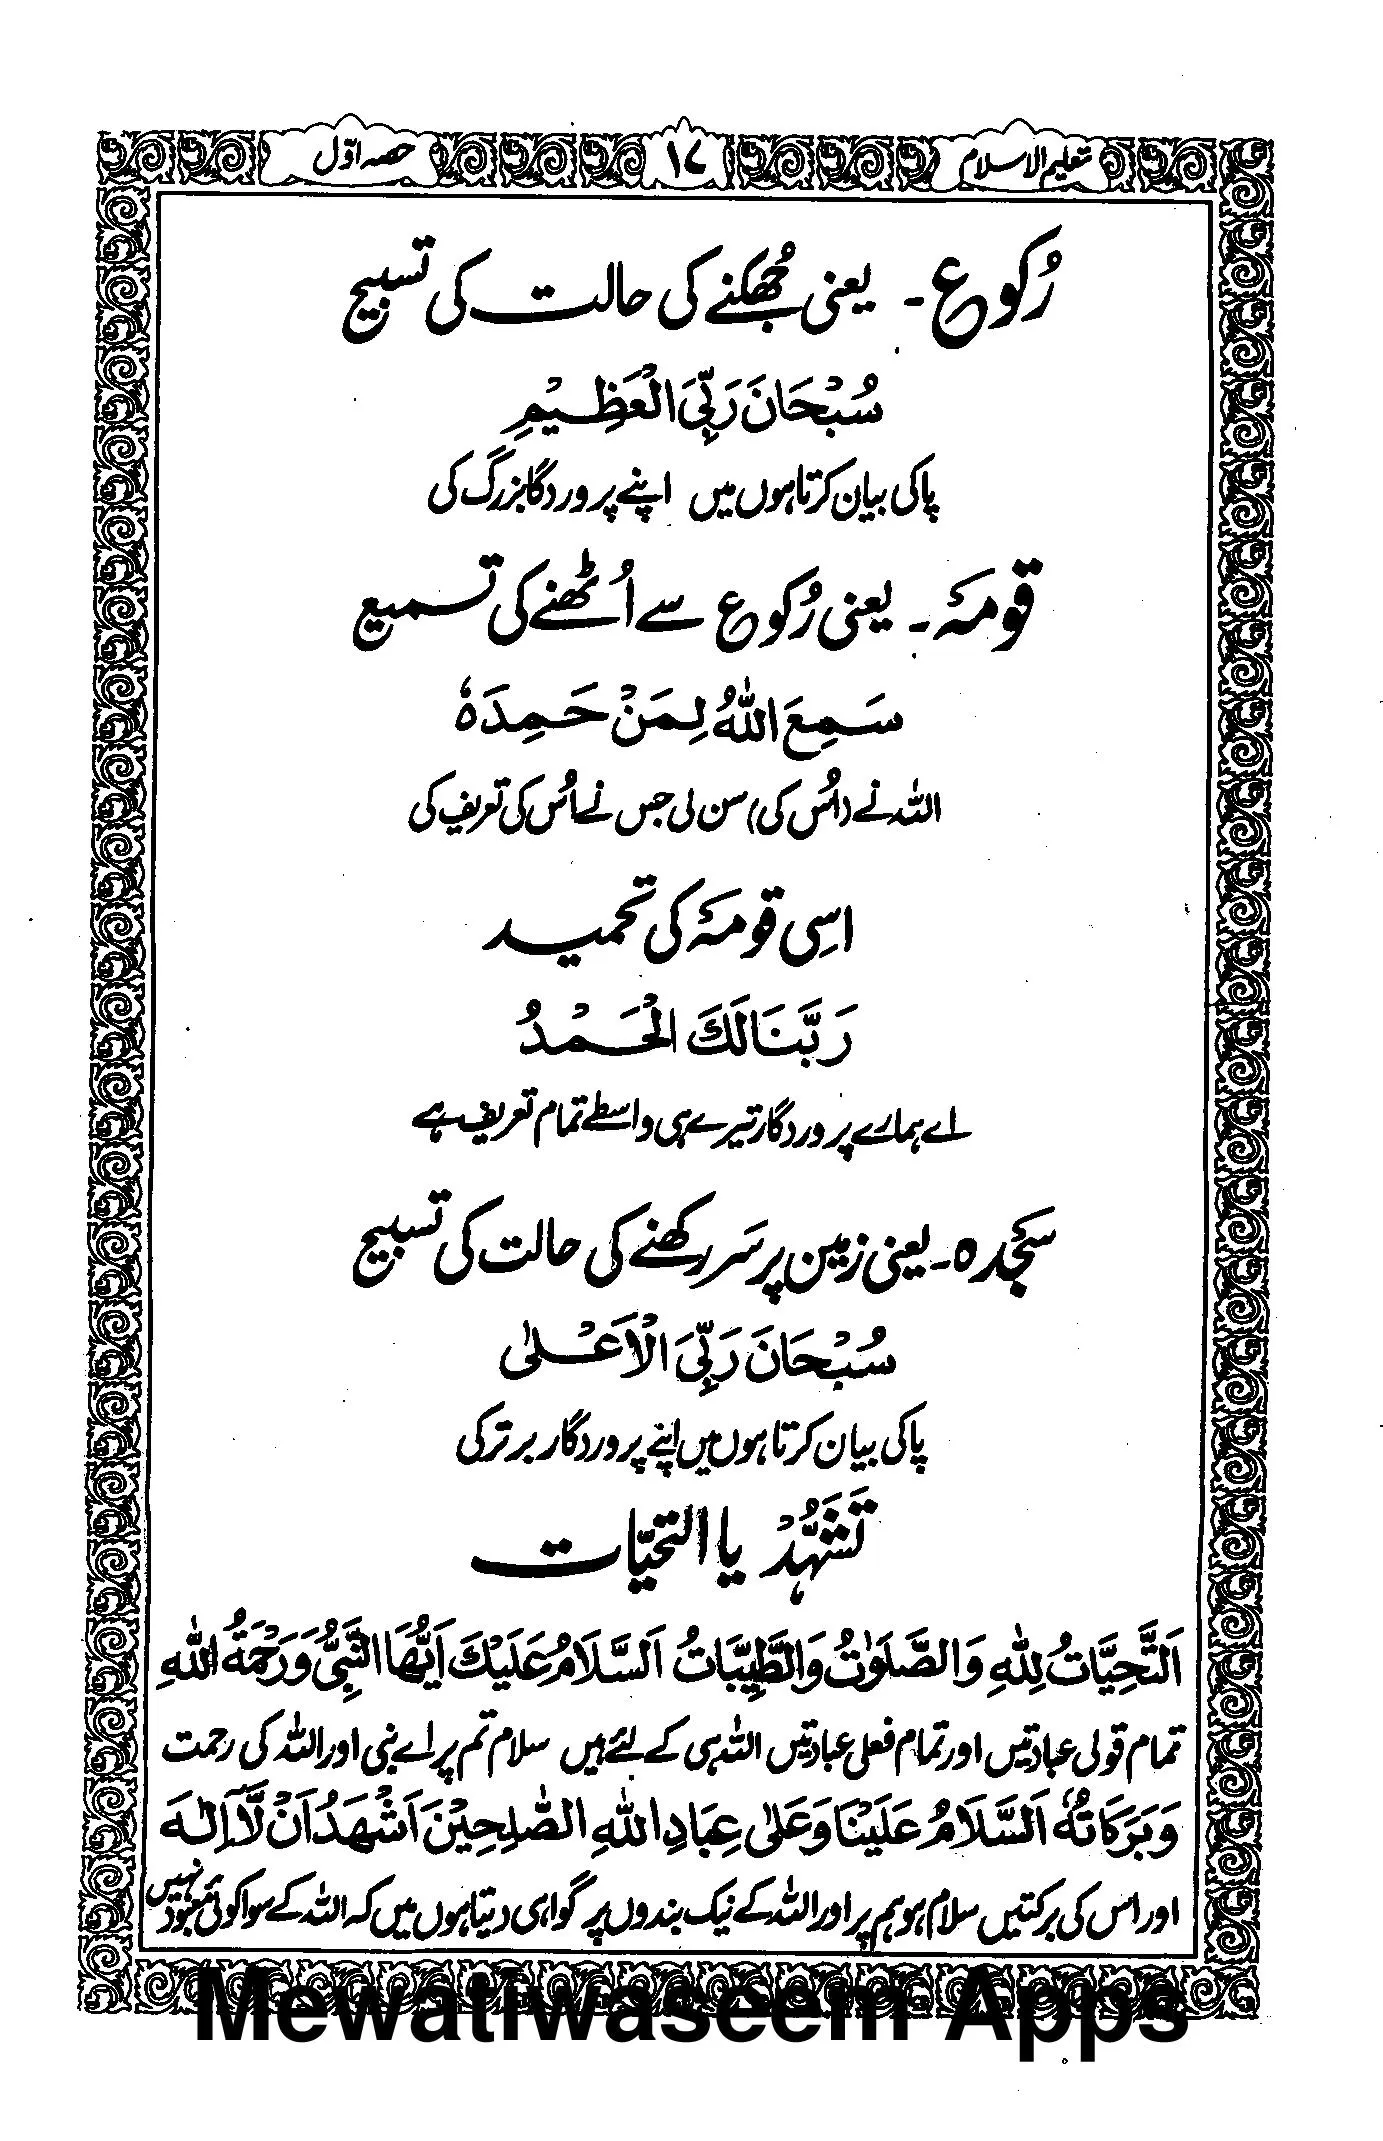 تعلیم الاسلام ۱۷ حصہ اوّل
رُکوع ۔ یعنی جُھکنے کی حالت کی تسبیح
سُبْحَانَ رَبِّیَ الْعَظِیْمِ
پاکی بیان کرتا ہوں میں اپنے پروردگا بزرگ کی
قومَہ ۔ یعنی رُکوع سے اُٹھنے کی تسمیع
سَمِعَ اللہُ لِمَنْ حَمِدَہٗ
اللہ نے (اُس کی) سن لی جس نے اُس کی تعریف کی
اسِی قومَہ کی تحمید
رَبَّنَا لَكَ الْحَمْدُ
اے ہمارے پروردگار تیرے ہی واسطے تمام تعریف ہے
سَجدہ ۔ یعنی زمین پر سَر رکھنے کی حالت کی تسبیح
سُبْحَانَ رَبِّیَ الْاَعْلٰی
پاکی بیان کرتا ہوں میں اپنے پروردگار برتر کی
تَشَہُّدْ یا التحیّات
اَلتَّحِیَّاتُ لِلّٰہِ وَالصَّلَوٰتُ وَالطَّیِّبَاتُ اَلسَّلَامُ عَلَیْكَ اَیُّھَا النَّبِیُّ وَرَحْمَۃُ اللہِ
تمام قولی عبادتیں اور تمام فعلی عبادتیں اللہ ہی کے لئے ہیں سلام تم پر اے نبی اور اللہ کی رحمت
وَبَرَکَاتُہٗ اَلسَّلَامُ عَلَیْنَا وَعَلٰی عِبَادِ اللہِ الصّٰلِحِیْنَ اَشْھَدُ اَنْ لَّآ اِلٰہَ
اور اس کی برکتیں سلام ہو ہم پر اور اللہ کے نیک بندوں پر گواہی دیتا ہوں میں کہ اللہ کے سوا کوئی معبود نہیں
Mewatiwaseem Apps